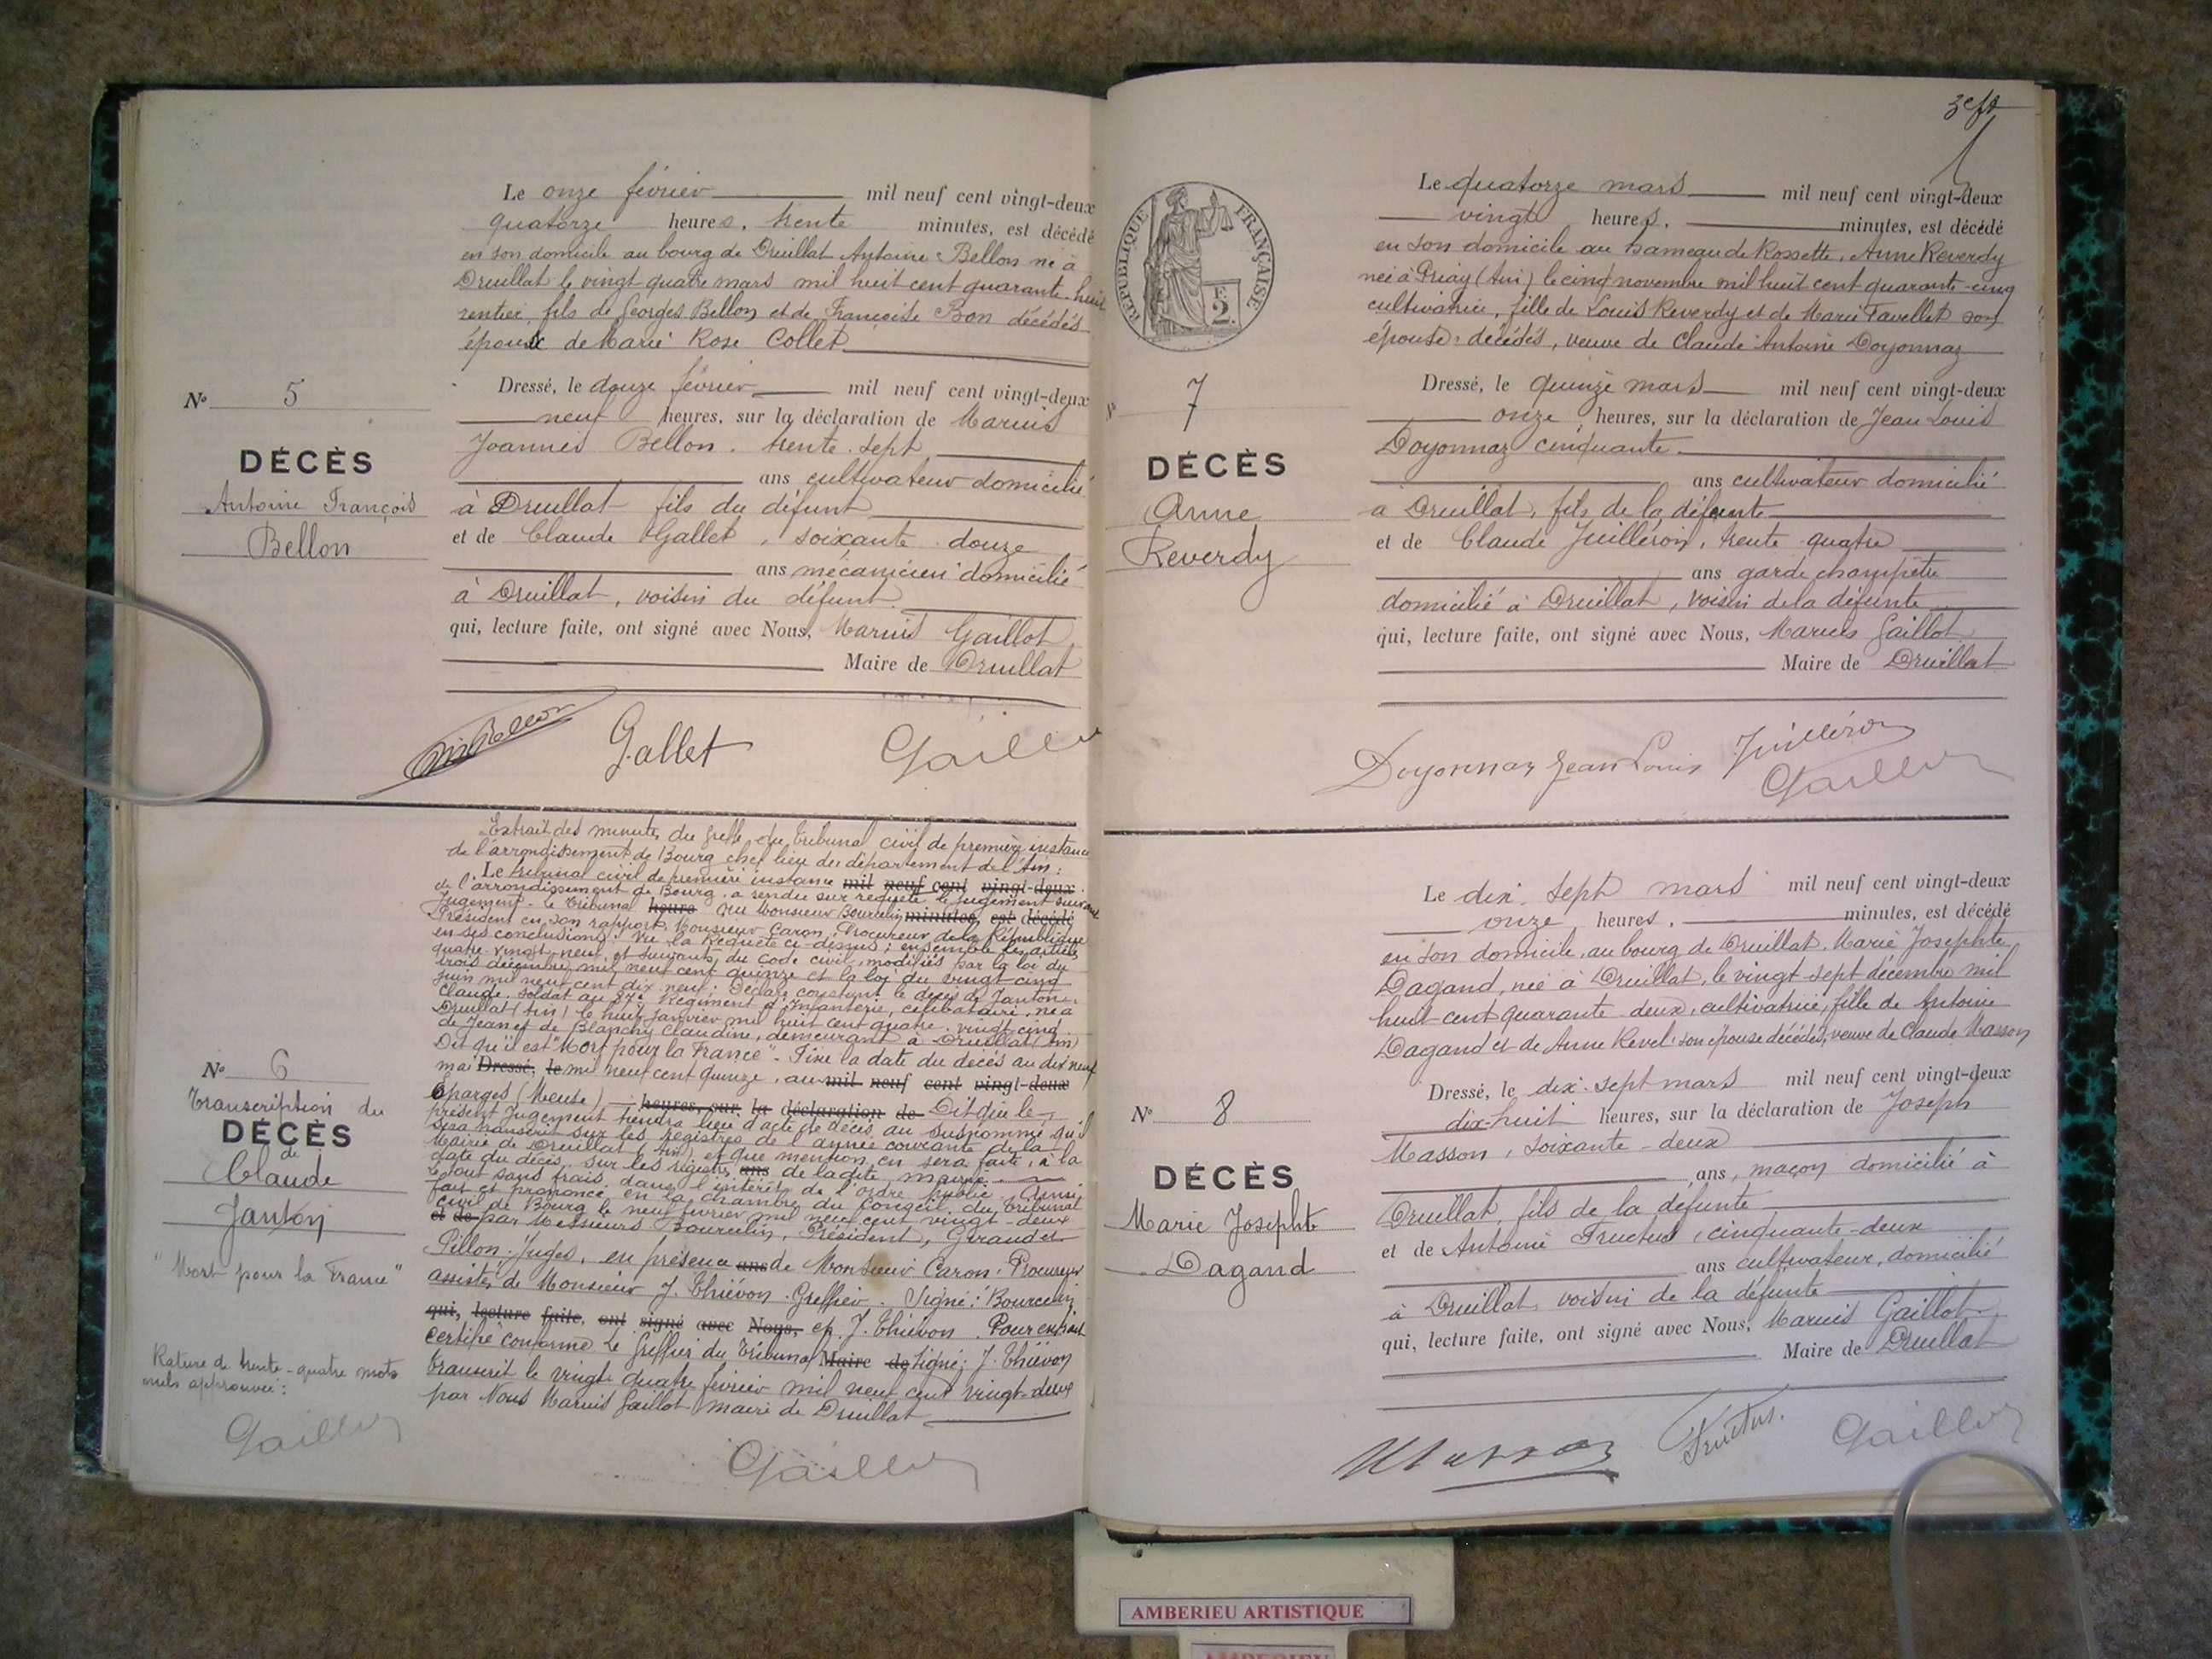 Le onze février mil neuf cent vingt-deux
quatorze heures, trente minutes, est décédé
en son domicile au bourg de Druillat Antoine Bellon né à
Druillat le vingt quatre mars mil huit cent quarante-huit
rentier, fils de Georges Bellon et de Françoise Bon décédés
époux de Marie Rose Collet
N° 5
DÉCÈS
Antoine François
Bellon
Dressé, le douze février mil neuf cent vingt-deux
neuf heures, sur la déclaration de Marius
Joannès Bellon, trente-sept
ans cultivateur domicilié
à Druillat fils du défunt
et de Claude Gallet, soixante-douze
ans mécanicien domicilié
à Druillat, voisin du défunt
qui, lecture faite, ont signé avec Nous, Marius Gaillot
Maire de Druillat
Gallet Gaillot
N° 6
Transcription du
DÉCÈS
de
Claude
Janton
"Mort pour la France"
Rature de trente-quatre mots
nuls approuvée :
Gaillot
Extrait des minutes du greffe du Tribunal civil de première instance
de l'arrondissement de Bourg chef lieu du département de l'Ain :
Le tribunal civil de première instance mil neuf cent vingt-deux
de l'arrondissement de Bourg, a rendu sur requête le jugement suivant
Jugement - le Tribunal heure Ouï Monsieur Bourcelin minutes, est décédé
Président en son rapport, Monsieur Caron, Procureur de la République
en ses conclusions ; Vu la Requête ci-dessus ; ensemble les articles
quatre-vingt-neuf et suivants du Code civil, modifiés par la loi du
trois décembre mil neuf cent quinze et la loi du vingt cinq
juin mil neuf cent dix neuf ; Déclare constant le décès de Janton
Claude, soldat au Régiment d'Infanterie, célibataire, né à
Druillat (Ain) le huit janvier mil huit cent quatre-vingt cinq
de Jean et de Blanchy Claudine, demeurant à Druillat (Ain)
Dit qu'il est "Mort pour la France" - Fixe la date du décès au dix neuf
mai Dressé, le mil neuf cent quinze, aux mil neuf cent vingt-deux
Éparges (Meuse) heures, sur la déclaration de Dit que le
présent Jugement tiendra lieu d'acte de décès au susnommé, qu'il
sera transcrit sur les registres de l'année courante de la
Mairie de Druillat (Ain) et que mention en sera faite, à la
date du décès, sur les registres ans de ladite mairie
Le tout sans frais dans l'intérêt de l'ordre public. Ainsi
fait et prononcé en la chambre du Conseil du Tribunal
civil de Bourg le neuf février mil neuf cent vingt-deux
et de par Messieurs Bourcelin, Président, Giraud et
Pillon, Juges, en présence ans de Monsieur Caron, Procureur
assistés de Monsieur J. Thiévon Greffier. Signé : Bourcelin
qui, lecture faite, ont signé avec Nous, et J. Thiévon. Pour extrait
certifié conforme Le Greffier du Tribunal Maire de Signé : J. Thiévon
Transcrit le vingt quatre février mil neuf cent vingt-deux
par Nous Marius Gaillot maire de Druillat
Gaillot
RÉPUBLIQUE FRANÇAISE
Le quatorze mars mil neuf cent vingt-deux
vingt heures, minutes, est décédé
en son domicile au hameau de Rossette, Anne Reverdy
née à Priay (Ain) le cinq novembre mil huit cent quarante-cinq
cultivatrice, fille de Louis Reverdy et de Marie Favellet son
épouse décédés, veuve de Claude Antoine Doyonnaz
N° 7
DÉCÈS
Anne
Reverdy
Dressé, le quinze mars mil neuf cent vingt-deux
onze heures, sur la déclaration de Jean Louis
Doyonnaz cinquante
ans cultivateur domicilié
à Druillat, fils de la défunte
et de Claude Juilléron, trente-quatre
ans garde champêtre
domicilié à Druillat, voisin de la défunte
qui, lecture faite, ont signé avec Nous, Marius Gaillot
Maire de Druillat
Doyonnaz Jean Louis Juilléron
Gaillot
Le dix-sept mars mil neuf cent vingt-deux
onze heures, minutes, est décédé
en son domicile, au bourg de Druillat, Marie Josephte
Dagand, née à Druillat, le vingt-sept décembre mil
huit-cent quarante-deux, cultivatrice, fille de Antoine
Dagand et de Anne Revel son épouse décédés, veuve de Claude Masson
N° 8
DÉCÈS
Marie Josephte
Dagand
Dressé, le dix-sept mars mil neuf cent vingt-deux
dix-huit heures, sur la déclaration de Joseph
Masson, soixante-deux
ans, maçon domicilié à
Druillat, fils de la défunte
et de Antoine Fructus, cinquante-deux
ans cultivateur, domicilié
à Druillat, voisin de la défunte
qui, lecture faite, ont signé avec Nous, Marius Gaillot
Maire de Druillat
Masson Fructus. Gaillot
AMBERIEU ARTISTIQUE
AMBERIEU